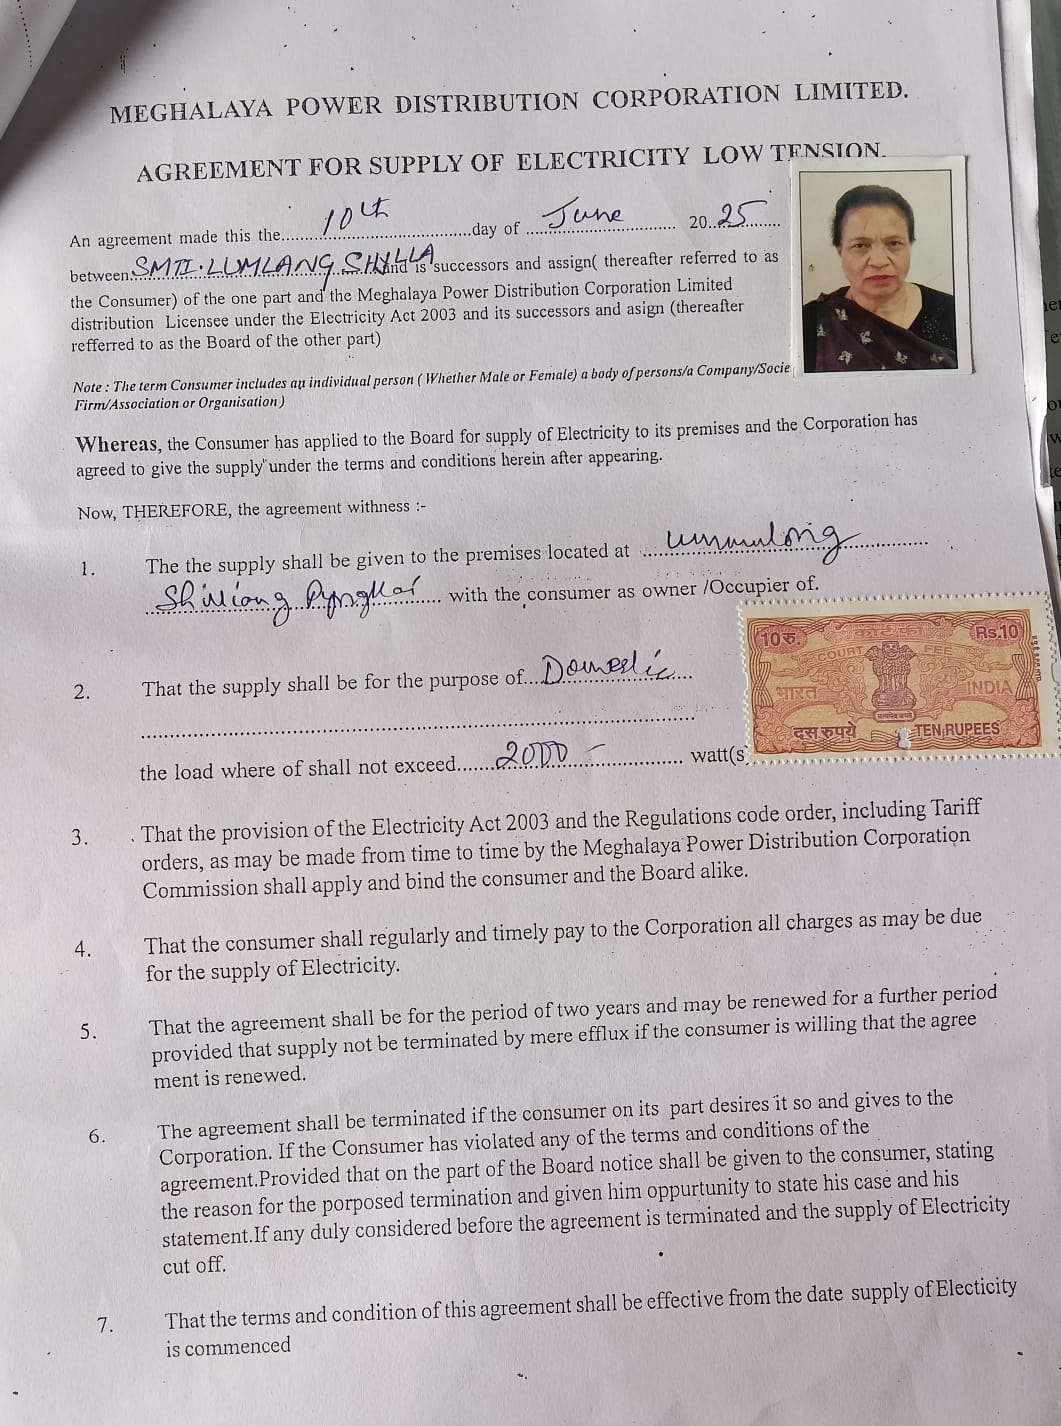 MEGHALAYA POWER DISTRIBUTION CORPORATION LIMITED.
AGREEMENT FOR SUPPLY OF ELECTRICITY LOW TENSION.
An agreement made this the 10th day of June 2025
between SMTI. LUMLANG SHYLLA and is successors and assign( thereafter referred to as
the Consumer) of the one part and the Meghalaya Power Distribution Corporation Limited
distribution Licensee under the Electricity Act 2003 and its successors and asign (thereafter
refferred to as the Board of the other part)
Note : The term Consumer includes an individual person ( Whether Male or Female) a body of persons/a Company/Socie
Firm/Association or Organisation )
Whereas, the Consumer has applied to the Board for supply of Electricity to its premises and the Corporation has
agreed to give the supply under the terms and conditions herein after appearing.
Now, THEREFORE, the agreement withness :-
1. The the supply shall be given to the premises located at
with the consumer as owner /Occupier of.
2. That the supply shall be for the purpose of Domestic
the load where of shall not exceed 2000 watt(s
10 रु. कोर्ट फ़ी Rs.10
COURT FEE
भारत INDIA
दस रुपये TEN RUPEES
3. . That the provision of the Electricity Act 2003 and the Regulations code order, including Tariff
orders, as may be made from time to time by the Meghalaya Power Distribution Corporation
Commission shall apply and bind the consumer and the Board alike.
4. That the consumer shall regularly and timely pay to the Corporation all charges as may be due
for the supply of Electricity.
5. That the agreement shall be for the period of two years and may be renewed for a further period
provided that supply not be terminated by mere efflux if the consumer is willing that the agree
ment is renewed.
6. The agreement shall be terminated if the consumer on its part desires it so and gives to the
Corporation. If the Consumer has violated any of the terms and conditions of the
agreement.Provided that on the part of the Board notice shall be given to the consumer, stating
the reason for the porposed termination and given him oppurtunity to state his case and his
statement.If any duly considered before the agreement is terminated and the supply of Electricity
cut off.
7. That the terms and condition of this agreement shall be effective from the date supply of Electicity
is commenced